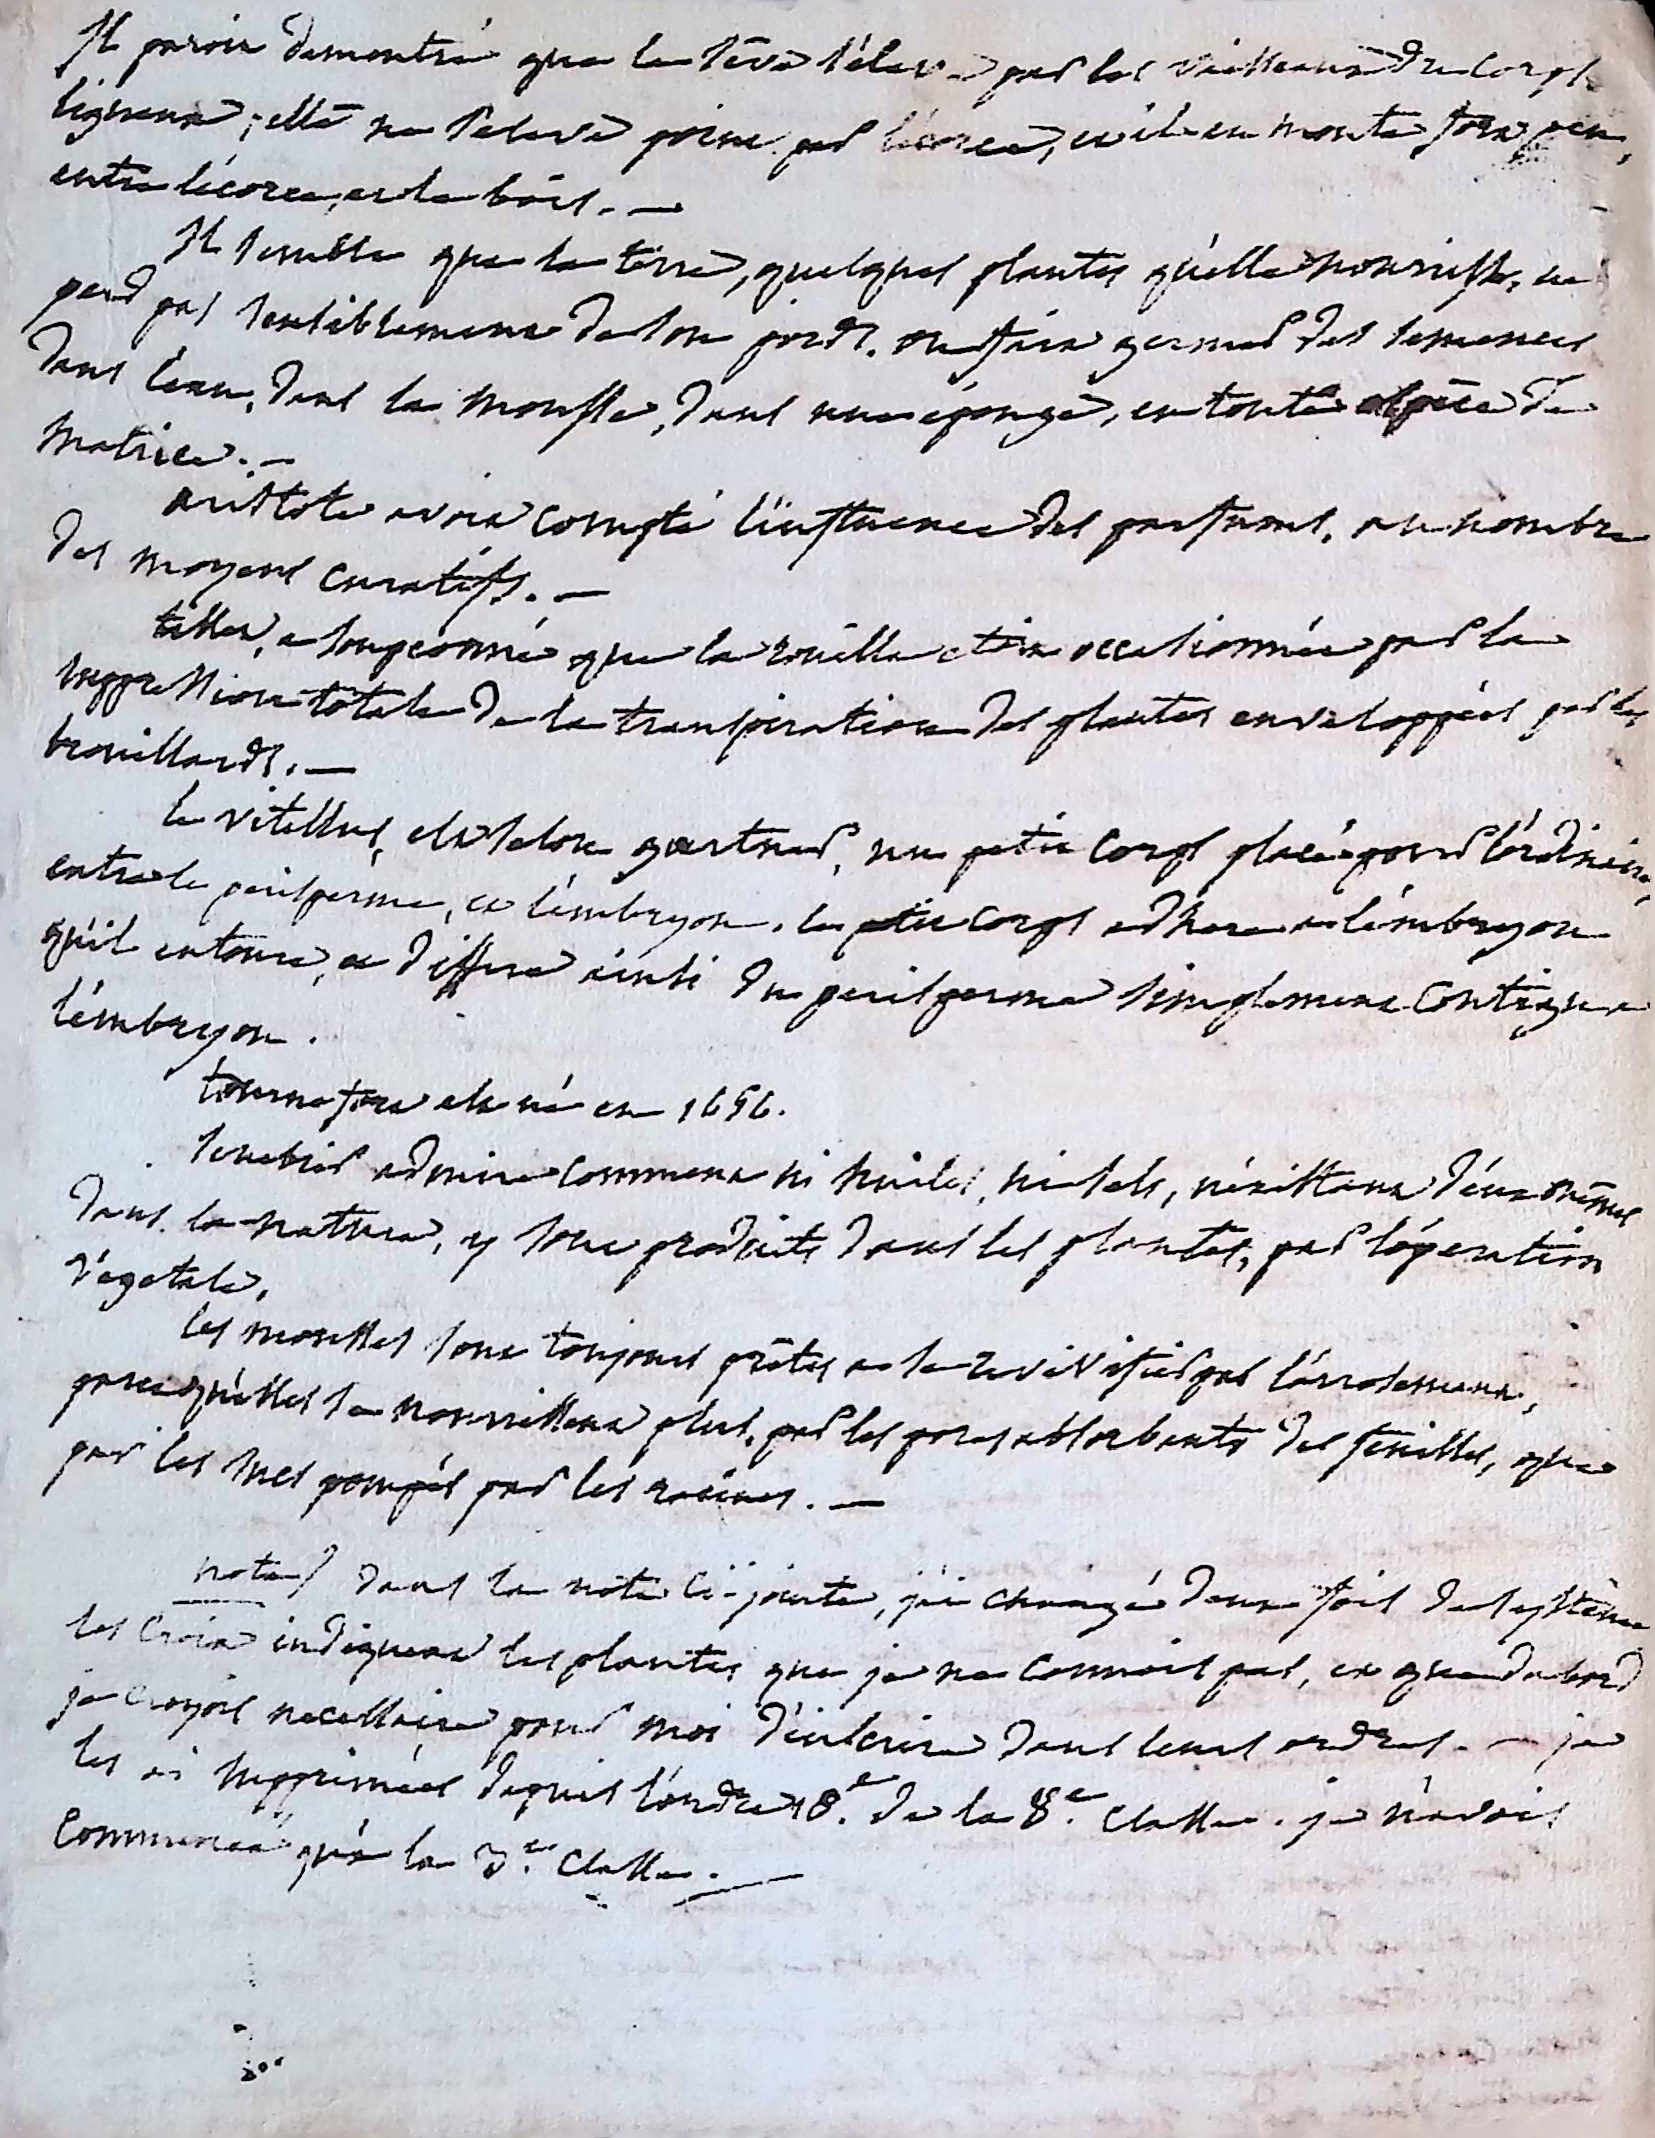 Il paroit demontré que la séve s'éleve par les vaisseaux du corps
ligneux ; elle ne s'eleve point par l'écorce, et il en monte fort peu,
entre l'écorce, et le bois. —
Il semble que la terre, quelques plantes qu'elle nourrisse, ne
perd pas sensiblement de son poids. on fait germer des semences
dans l'eau, dans la mousse, dans une éponge, en toute espèce de
matrice. —
aristote avoit compté l'influence des parfums, au nombre
des moyens curatifs. —
tillet, a soupçonné que la rouille etoit occasionnée par la
suppression totale de la transpiration des plantes enveloppées par les
brouillards. —
le vitellus, est selon gaertner, un petit corps placé pour l'ordinaire,
entre le perisperme, et l'embryon. le petit corps adhere a l'embryon
qu'il entoure, et differe ainsi du perisperme simplement contigu a
l'embryon.
tournefort est né en 1656.
senebier admire comment ni huiles, ni sels, n'éxistant d'eux mêmes
dans la nature, y sont produits dans les plantes, par l'operation
végetale.
les mousses sont toujours prêtes a se revivifier par l'arrosement,
parcequ'elles se nourrissent plus, par les pores absorbants des feuilles, que
par les sucs pompés par les racines. —
nota) dans la note ci-jointe, j'ai changé deux fois de systême
les croix indiquent les plantes que je ne connois pas, et que d'abord
je croyois necessaire pour moi d'inscrire dans leurs ordres. — je
les ai supprimées depuis l'ordre 18.e de la 8.e classe. je n'avois
commencé qu'a la 3.e classe. —